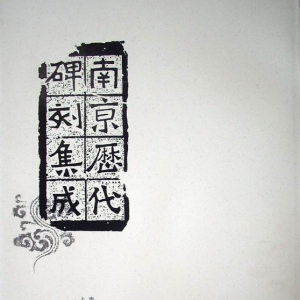 南京歷代
碑刻集成